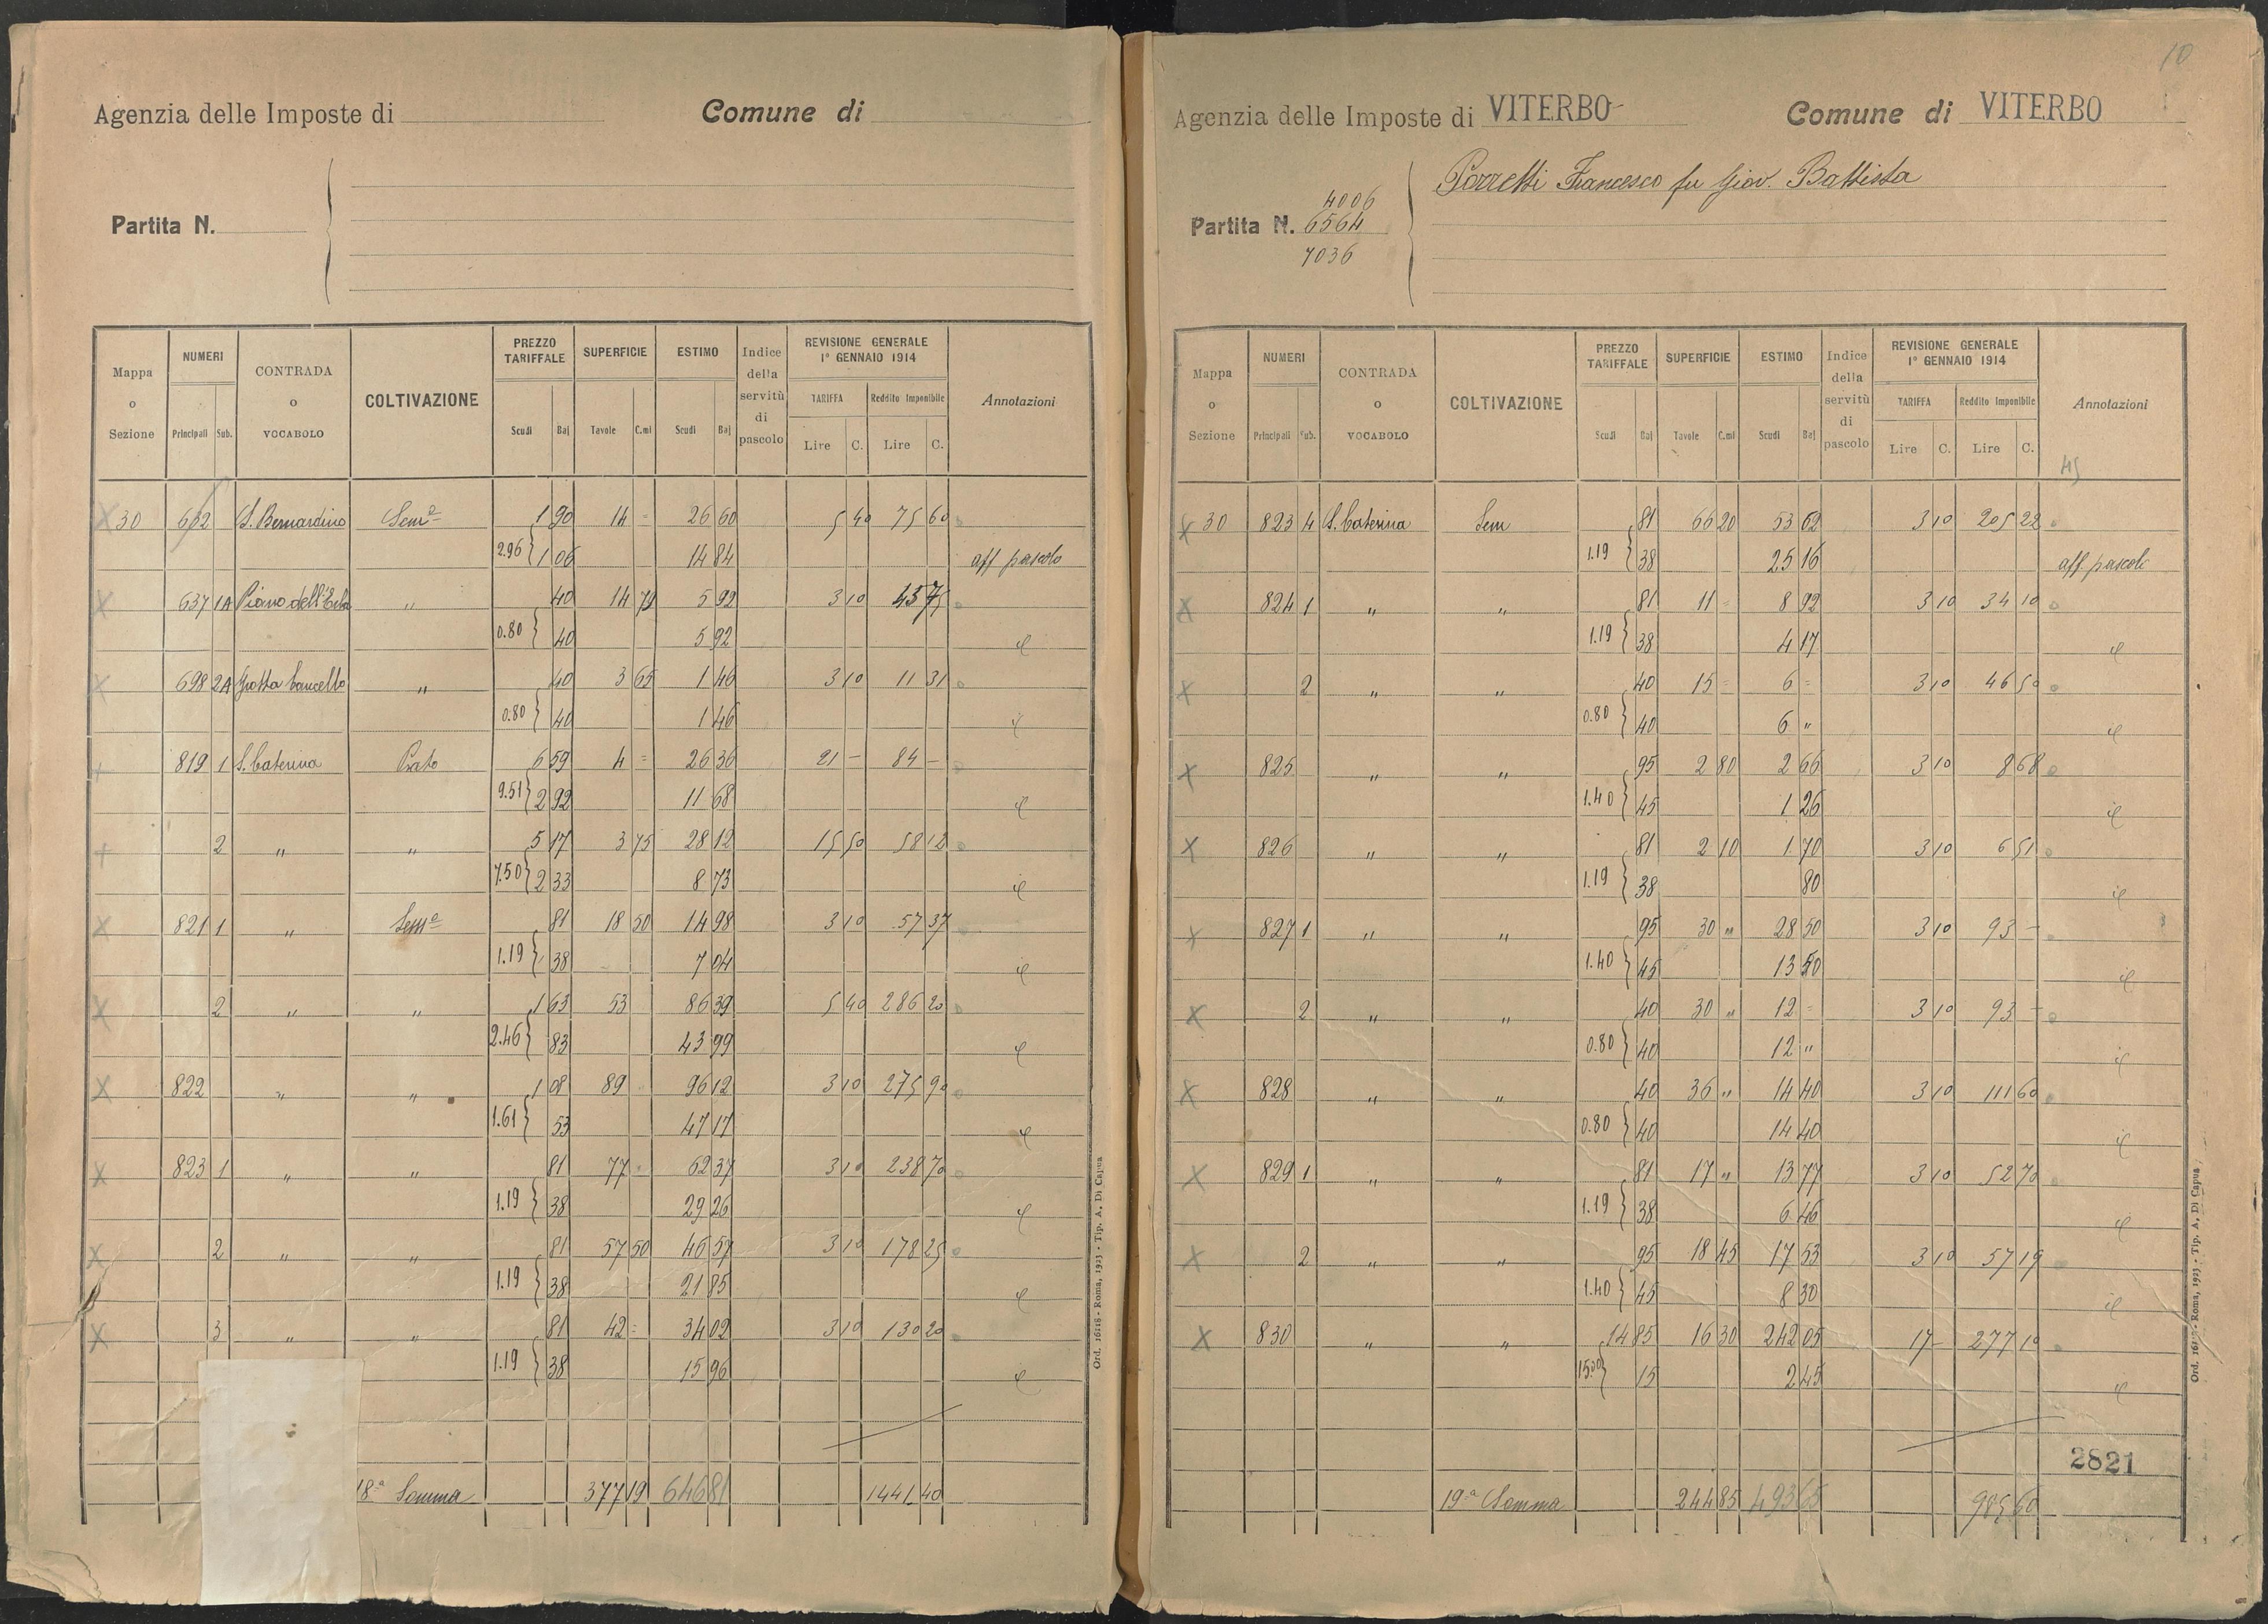 Agenzia delle Imposte di
Comune di
Partita N.
Mappa o Sezione
NUMERI
Principali Sub.
CONTRADA o VOCABOLO
COLTIVAZIONE
PREZZO TARIFFALE
Scudi Baj
SUPERFICIE
Tavole C.mi
ESTIMO
Scudi Baj
Indice della servitù di pascolo
REVISIONE GENERALE 1° GENNAIO 1914
TARIFFA Reddito Imponibile
Lire C. Lire C.
Annotazioni
X 30 612 S. Bernardino Sem.o 1 90 14 = 26 60 5 40 75 60
2.96 } 1 06 14 84 aff pascolo
X 637 1A Piano dell' 40 14 79 5 92 3 10 45 75
0.80 } 40 5 92
X 698 2A Grotta Cancello " 40 3 65 1 46 3 10 11 31
0.80 } 40 1 46
819 1 S. Caterina Prato 6 59 4 = 26 36 21 — 84 —
9.51 } 2 92 11 68
2 " " 5 17 3 75 28 12 15 50 58 12
7.50 } 2 33 8 73
X 821 1 " Sem.o 81 18 50 14 98 3 10 57 37
1.19 } 38 7 04
X 2 " " 1 63 53 86 39 5 40 286 20
2.46 } 83 43 99
X 822 " " 1 08 89 96 12 3 10 275 90
1.61 } 53 47 17
X 823 1 " " 81 77 = 62 37 3 10 238 70
1.19 } 38 29 26
X 2 " " 81 57 50 46 57 3 10 178 25
1.19 } 38 21 85
X 3 " " 81 42 = 34 02 3 10 130 20
1.19 } 38 15 96
18a Somma 377 19 646 81 1441 40
Ord. 16118 - Roma, 1923 - Tip. A. Di Capua
10
Agenzia delle Imposte di VITERBO
Comune di VITERBO
Porretti Francesco fu Giov. Battista
4006
Partita N. 6564
7036
Mappa o Sezione
NUMERI
Principali Sub.
CONTRADA o VOCABOLO
COLTIVAZIONE
PREZZO TARIFFALE
Scudi Baj
SUPERFICIE
Tavole C.mi
ESTIMO
Scudi Baj
Indice della servitù di pascolo
REVISIONE GENERALE 1° GENNAIO 1914
TARIFFA Reddito Imponibile
Lire C. Lire C.
Annotazioni
45
X 30 823 4 S. Caterina Sem 81 66 20 53 62 3 10 205 22
1.19 } 38 25 16 aff. pascoli
X 824 1 " " 81 11 = 8 92 3 10 34 10
1.19 } 38 4 17
X 2 " " 40 15 = 6 = 3 10 46 50
0.80 } 40 6 "
X 825 " " 95 2 80 2 66 3 10 8 68
1.40 } 45 1 26
X 826 " " 81 2 10 1 70 3 10 6 51
1.19 } 38 80
X 827 1 " " 95 30 " 28 50 3 10 93 —
1.40 } 45 13 50
X 2 " " 40 30 " 12 = 3 10 93 —
0.80 } 40 12 "
X 828 " " 40 36 " 14 40 3 10 111 60
0.80 } 40 14 40
X 829 1 " " 81 17 " 13 77 3 10 52 70
1.19 } 38 6 46
X 2 " " 95 18 45 17 53 3 10 57 19
1.40 } 45 8 30
X 830 " " 14 85 16 30 242 05 17 — 277 10
15.00 } 15 2 45
2821
19a Somma 244 85 493 65 985 60
Ord. 16118 - Roma, 1923 - Tip. A. Di Capua